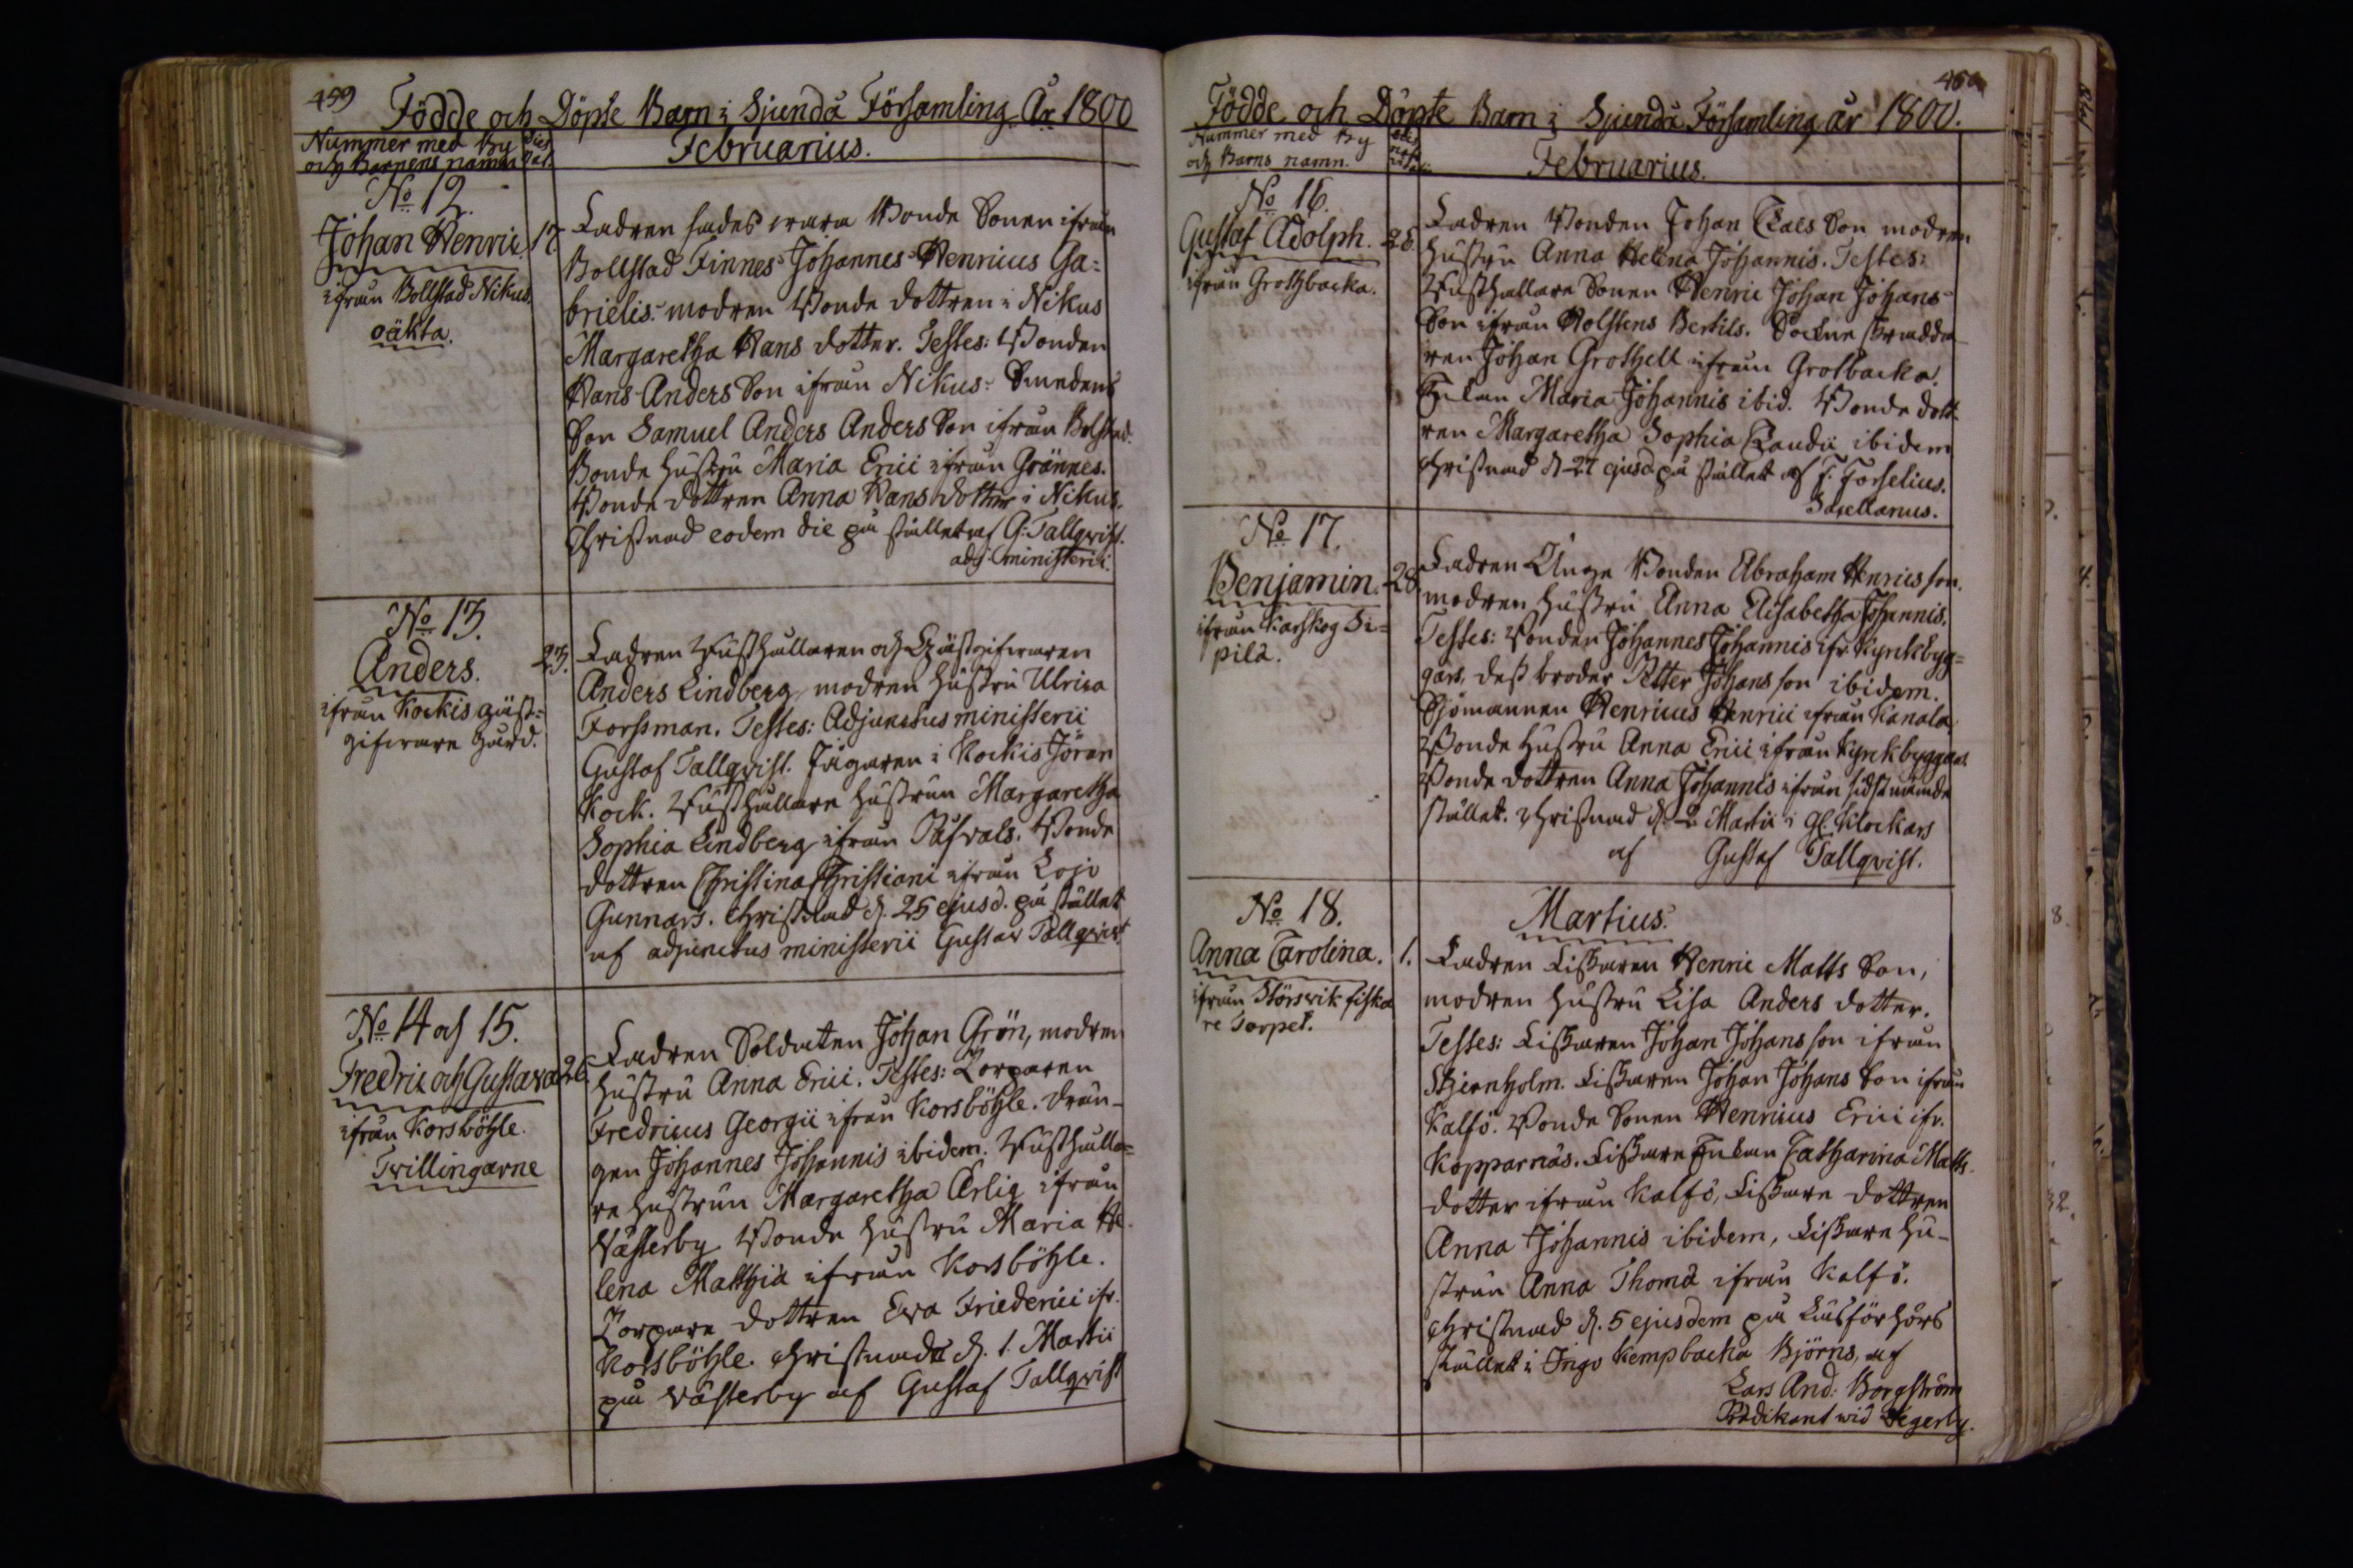 459
Födde och Döpte Barn i Sjundå Församling År 1800
Nummer med By
och Barnens namn
dies
nat.
Februarius.
No 12.
Johan Henric
ifrån Bollstad Nikus.
oäkta.
17.
Fadren sades wara Bonde Sonen ifrån
Bollstad Finnes Johannes Henricus Ga=
brielis. modren Bonde dottren i Nikus
Margaretha Hans dotter. Testes: Bonden
Hans Anders Son ifrån Nikus: Smedens
Son Samuel Anders Anders Son ifrån Bolstad.
Bonde hustru Maria Erici ifrån Grännes.
Bonde dottren Anna Hans dotter i Nikus.
Christnad eodem die på stället af G: Tallqvist.
adj. ministerii.
No 13.
Anders.
ifrån Kockis gäst=
gifware gård.
23.
Fadren Rusthållaren och Gästgifwaren
Anders Lindberg, modren hustru Ulrica
Forssman. Testes: Adjunctus ministerii
Gustaf Tallqvist. Jägaren i Kockis Jöran
Kock. Rusthållare hustrun Margaretha
Sophia Lindberg ifrån Påfvals. Bonde
dottren Christina Christiani ifrån Lojo
Gunnars. Christnad d. 25 ejusd. på stället
af adjunctus ministerii Gustav Tallqvist
No 14 och 15.
Fredric och Gustava
ifrån Korsböhle.
Tvillingarne
26.
Fadren Soldaten Johan Grön, modren
hustru Anna Erici. Testes: Torparen
Fredricus Georgii ifrån Korsböhle. drän-
gen Johannes Johannis ibidem. Rusthålla=
re hustrun Margaretha Ärlig ifrån
Västerby Bonde hustru Maria He-
lena Matthiæ ifrån Korsböhle.
Torpare dottren Eva Friederici ifr.
Korsböhle. christnade d. 1. Martii
på Västerby af Gustaf Tallqvist
460
Födde och Döpte Barn i Sjundå Församling år 1800.
Nummer med By
och Barns namn.
dies
Februarius.
No 16.
Gustaf Adolph.
ifrån Grothbacka.
26.
Fadren Bonden Johan Claes Son modren
hustru Anna Helena Johannis. Testes:
Rusthållare Sonen Henric Johan Johans=
Son ifrån Holstens Bertils. Sockne skrädda-
ren Johan Grothell ifrån Grotbacka.
Enkan Maria Johannis ibid. Bonde dott-
ren Margaretha Sophia Claudii ibidem
Christnad d 27 ejusd. på stället af F. Forselius.
Sacellanus.
No 17.
Benjamin.
ifrån Karskog Si=
pilä.
28.
Fadren Unge Bonden Abraham Henricsson.
modren hustru Anna Elisabetha Johannis.
Testes: Bonden Johannes Johannis ifr. Kyrkbyg=
gars. dess broder Petter Johansson ibidem.
Sjömannen Henricus Henrici ifrån Kanala,
Bonde hustru Anna Erici ifrån Kyrkbyggars
Bonde dottren Anna Johannis ifrån sidstnämde
stället. Christnad d. 2 Martii i Gl. Klockars
af Gustaf Tallqvist.
No 18.
Anna Carolina.
ifrån Störsvik fiska
re Torpet.
Martius.
1.
Fadren Fiskaren Henric Matts Son,
modren hustru Lisa Anders dotter.
Testes: Fiskaren Johan Johansson ifrån
Stjernholm. Fiskaren Johan Johans Son ifrån
Kalfö. Bonde Sonen Henricus Erici ifr.
Kopparnäs. Fiskare Enkan Catharina Matts
dotter ifrån Kalfö, Fiskare dottren
Anna Johannis ibidem, Fiskare hu-
strun Anna Thomæ ifrån Kalfö.
Christnad d. 5 ejusdem på Läsförhörs
stället i Ingo Kempbacka Björns, af
Lars And: Borgström
Prædikant wid Fagerwik.